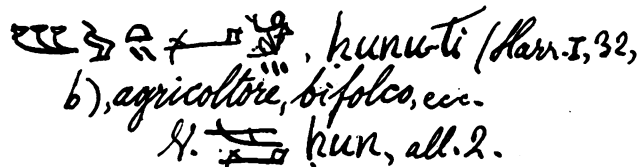 , hunu-ti (Harr. I, 32,
b), agricoltore, bifolco, ecc.
V. hun, all. 2.